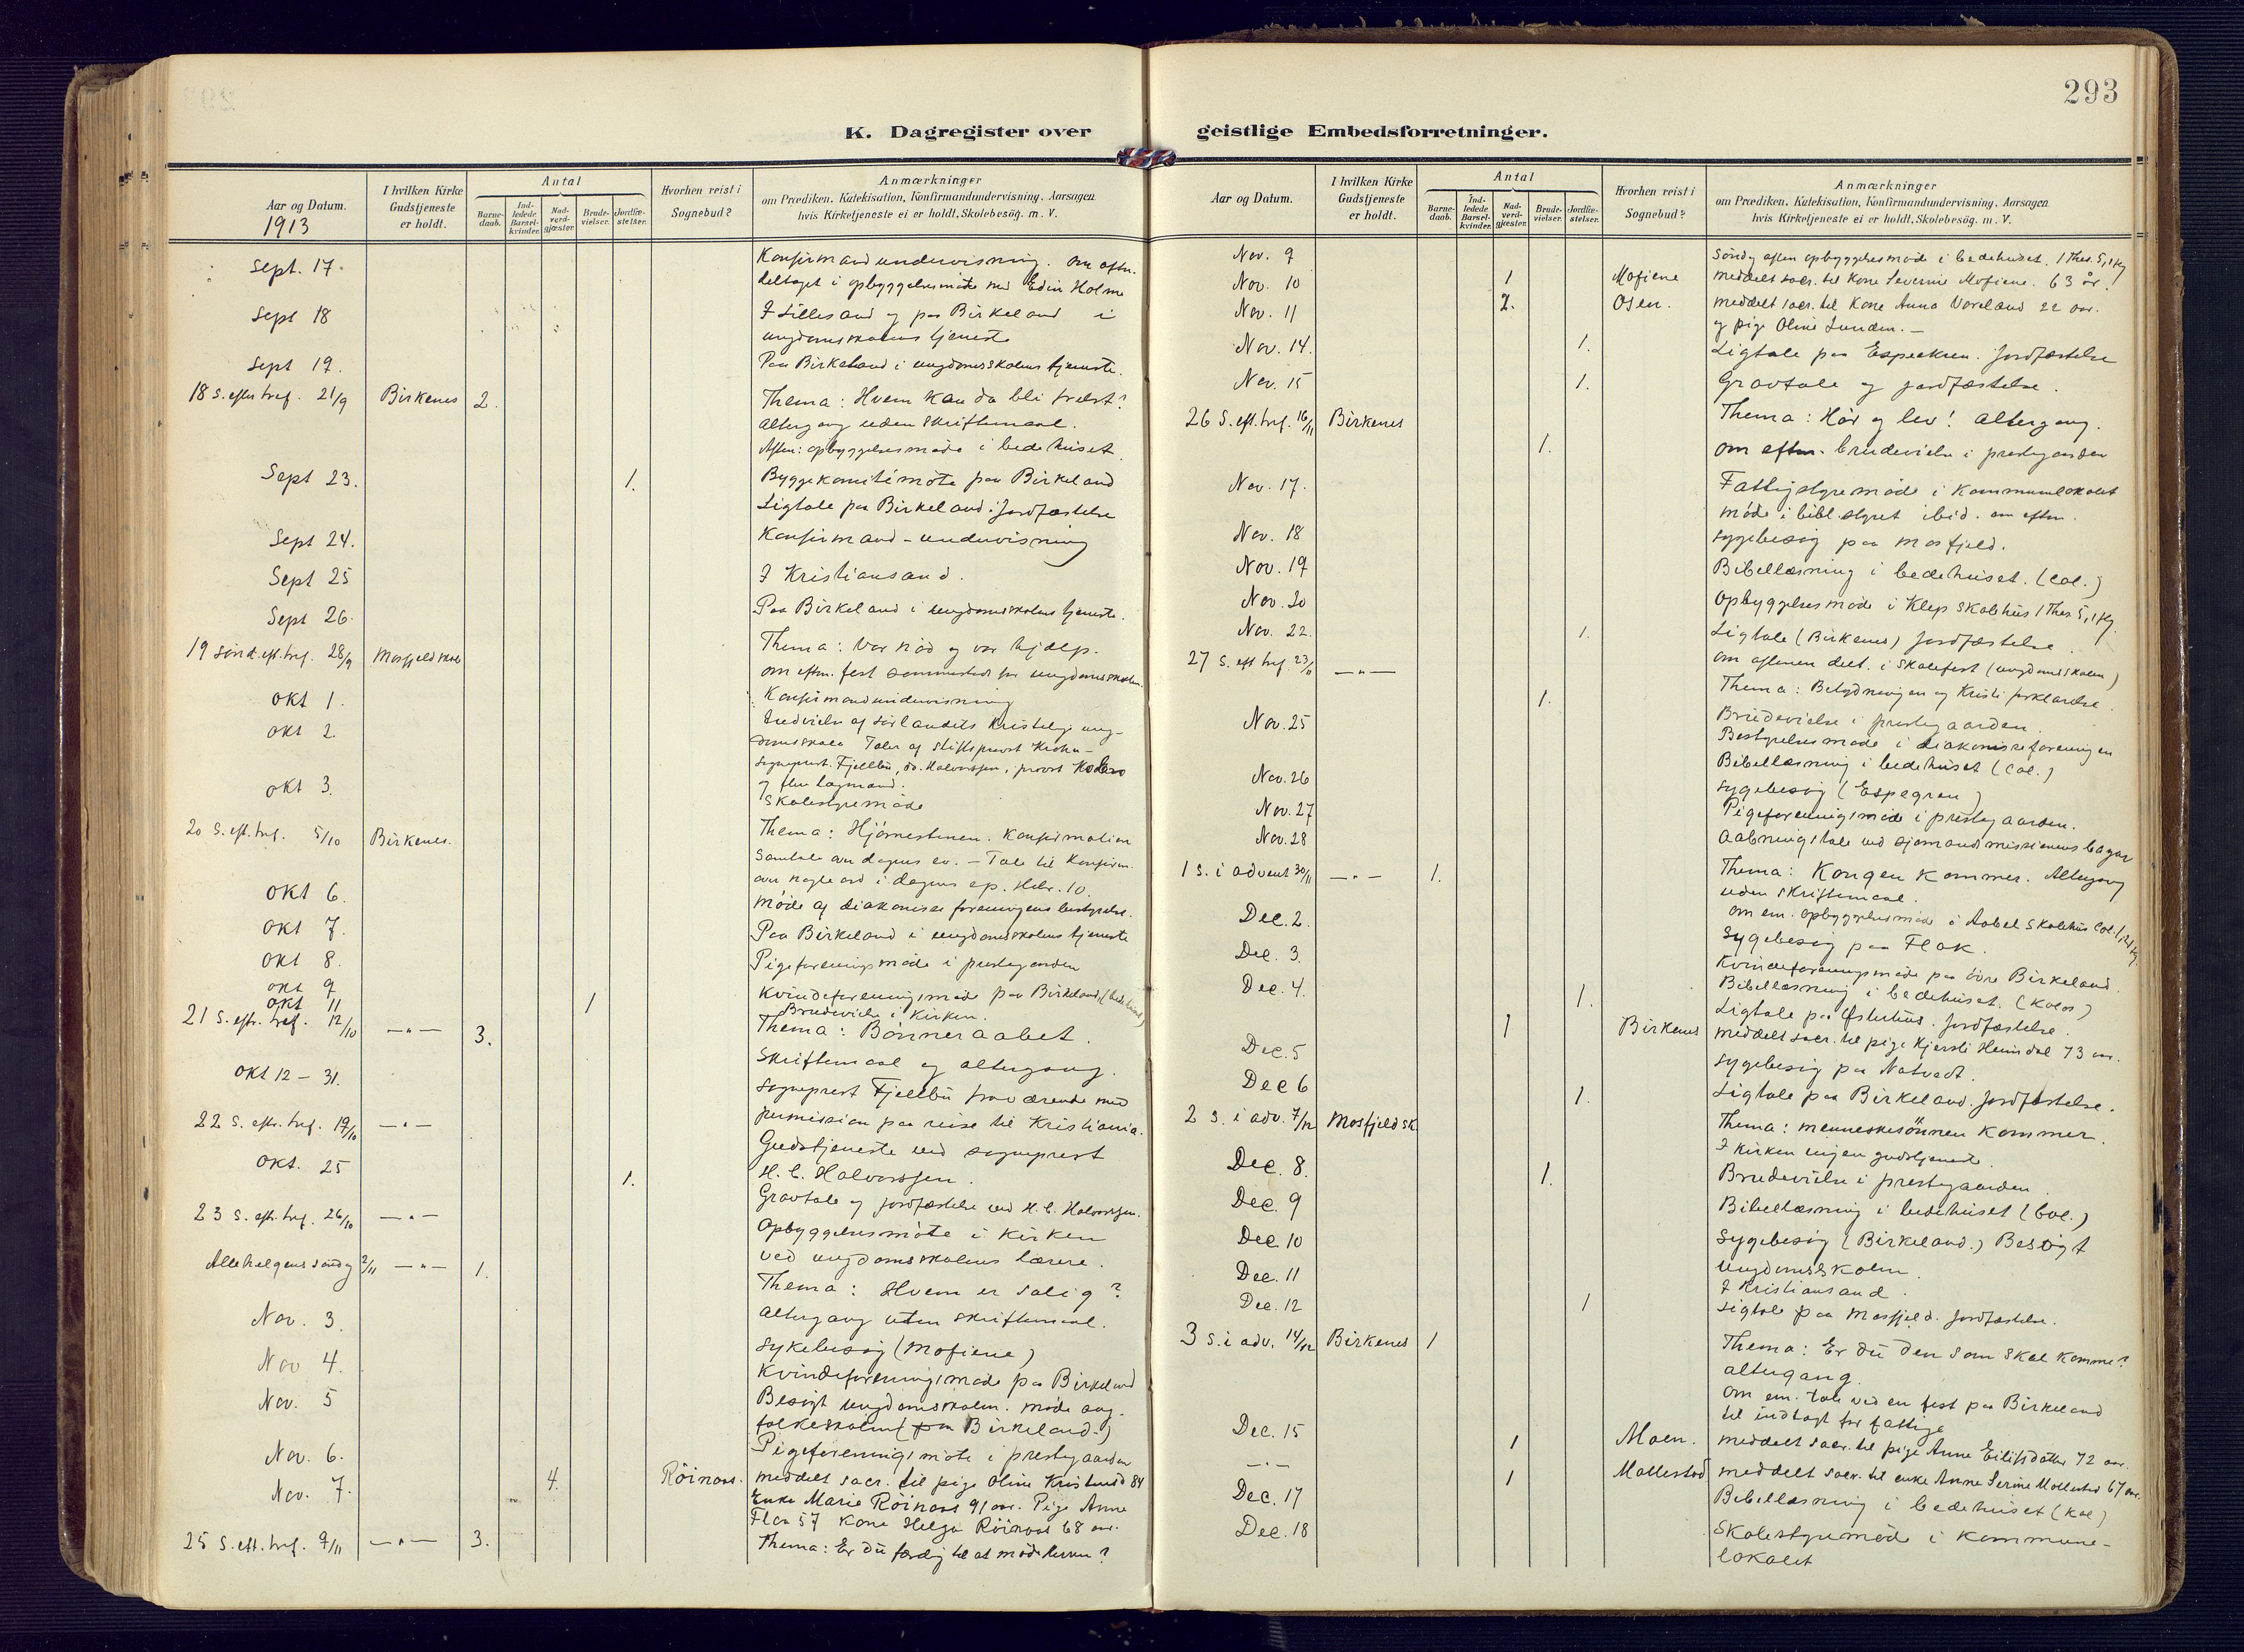 293
K. Dagregister over geistlige Embedsforretninger.
Aar og Datum.
1913
I hvilken Kirke Gudstjeneste er holdt.
Antal
Barne-daab.
Ind-ledede Barsel-kvinder.
Nad-verd-gjæster.
Brude-vielser.
Jordfæ-stelser.
Hvorhen reist i Sognebud?
Anmærkninger
om Prædiken, Katekisation, Konfirmandundervisning, Aarsagen
hvis Kirketjeneste ei er holdt, Skolebesög. m. V.
Sept. 17. Konfirmandundervisning. Om eftm.
deltaget i opbyggelsesmöte med Edin Holme
Sept 18 I Lillesand og paa Birkeland i
ungdomsskolens tjeneste
Sept 19. Paa Birkeland i ungdomsskolens tjeneste.
18 S. efter tref. 21/9 Birkenes 2. Thema: Hvem kan da bli frelst?
Altergang uden skriftemaal.
Aften: opbyggelsesmöde i bedehuset.
Sept 23. 1. Byggekomitémöte paa Birkeland
Ligtale paa Birkeland. Jordfæstelse
Sept 24. Konfirmand-undervisning
Sept 25 I Kristiansand.
Sept 26. Paa Birkeland i ungdomsskolens tjeneste.
19 sönd. eft. tref. 28/9 Mosfjeld skole Thema: Vor nöd og vor hjælp.
om eftm. fest sammesteds for ungdomsskolen.
Okt 1. Konfirmandundervisning
Okt 2. Indvielse af Sörlandets kristelige ung-
domsskole Taler af Stiftsprovst Krohn-
sogneprest. Fjellbu, do. Halvorssen, provst Koloo
og flere lægmænd.
Okt 3. Skolestyremöde
20 S. eft. tref. 5/10 Birkenes. Thema: Hjörnestenen. Konfirmation
Samtale over dagens ev. - Tale til Konfirm.
over nogle ord i dagens ep. Hebr. 10.
Okt 6. Möde af diakonisseforeningens bestyrelse.
Okt 7. Paa Birkeland i ungdomsskolens tjeneste
Okt 8. Pigeforeningsmöde i prestegaarden
Okt 9 Kvindeforeningsmöde paa Birkeland (bedehuset)
Okt 11 1 Brudevielse i Kirken.
21 S. eftr. tref. 12/10 —„— 3. Thema: Bönneraabet.
Skriftemaal og altergang.
Okt 12 - 31. Sogneprest Fjellbu fraværende med
permission paa reise til Kristiania.
22 S. eftr. tref. 19/10 —„— Gudstjeneste ved sogneprest
H. C. Halvorssen.
Okt. 25 1. Gravtale og jordfæstelse ved H. C. Halvorssen.
23 S. eftr. tref. 26/10 —„— Opbyggelsesmöte i kirken
ved ungdomsskolens lærere.
Allehelgens söndag 2/11 —„— 1. Thema: Hvem er salig?
Altergang uten skriftemaal.
Nov. 3. Sykebesög (Mofiene)
Nov 4. Kvindeforeningsmöde paa Birkeland
Nov. 5 Besögt ungdomsskolen. Möde ang.
folkeskolen (paa Birkeland.)
Nov. 6. Pigeforeningsmöte i prestegaarden
Nov. 7. 4. Röinaas. meddelt sacr. til pige Oline Kristensd 84
Enke Marie Röinaas 91 aar. Pige Anne
Flaa 57 Kone Helga Röinaas 68 aar.
25 S. eft. tref. 9/11 —„— 3. Thema: Er du færdig til at möde Herren?
Aar og Datum.
I hvilken Kirke Gudstjeneste er holdt.
Antal
Barne-daab.
Ind-ledede Barsel-kvinder.
Nad-verd-gjæster.
Brude-vielser.
Jordfæ-stelser.
Hvorhen reist i Sognebud?
Anmærkninger
om Prædiken, Katekisation, Konfirmandundervisning, Aarsagen
hvis Kirketjeneste ei er holdt, Skolebesög. m. V.
Nov. 9 Söndag aften opbyggelsesmöde i bedehuset. 1 Thes. 5,1 fg
Nov. 10 1 Mofiene meddelt sacr. til Kone Severine Mofiene. 63 år!
Nov. 11 2. Osen. meddelt sacr. til Kone Anna Voreland 22 aar.
og pige Oline Lunden. -
Nov. 14. 1. Ligtale paa Espeekren. Jordfæstelse
Nov. 15 1. Gravtale og jordfæstelse.
26 S. eft. tref. 16/11 Birkenes Thema: Hör og lev! Altergang.
1. om eftm. brudevielse i prestegaarden
Nov. 17. Fattigstyremöde i Kommunelokalet
Möde i bibl. styret ibid. om eftm.
Nov. 18 Sygebesög paa Mosfjeld.
Nov. 19 Bibellæsning i bedehuset. (Col.)
Nov. 20 Opbyggelsesmöde i Klep skolehus 1 Thes. 5,1 fg.
Nov. 22. 1. Ligtale (Birkenes) Jordfæstelse.
om aftenen delt. i skolefest (ungdomsskolen)
27 S. eft tref. 23/11 —„— Thema: Betydningen af Kristi forklarelse.
1. Brudevielse i prestegaarden.
Nov. 25 Bestyrelsesmöde i diakonisseforeningen
Nov. 26 Bibellæsning i bedehuset (Col.)
Sygebesög (Espegren)
Nov. 27 Pigeforeningsmöde i prestegaarden.
Nov. 28 Aabningstale ved sjömandsmissionens basar
1 S. i advent 30/11 —„— 1. Thema: Kongen kommer. Altergang
uden skriftemaal.
om em. opbyggelsesmöde i Aabel skolehus Col. 1,21 fg.
Dec. 2. Sygebesög paa Flak.
Dec. 3. Kvindeforeningsmöde paa övre Birkeland.
Bibellæsning i bedehuset. (Kolos)
Dec. 4. 1. Ligtale paa Österhus. Jordfæstelse.
1 Birkenes meddelt sacr. til pige Kjersti Heimdal 73 aar.
Dec. 5 Sygebesög paa Natvedt.
Dec 6 1. Ligtale paa Birkeland. Jordfæstelse.
2 S. i adv. 7/12 Mosfjeld sk. Thema: menneskesönnen kommer.
I Kirken ingen gudstjeneste.
Dec. 8. 1. Brudevielse i prestegaarden.
Dec. 9 Bibellæsning i bedehuset (Col.)
Dec. 10 Sygebesög (Birkeland.) Besögt
Ungdomsskolen.
Dec. 11 I Kristiansand.
Dec. 12 1 Ligtale paa Mosfjeld. Jordfæstelse.
3 S. i adv. 14/12 Birkenes 1 Thema: Er du den som skal komme?
altergang.
om em. tale ved en fest paa Birkeland
til indtægt for fattige
Dec. 15 1 Moen. meddelt sacr. til pige Anne Eilifsdatter 72 aar.
—„— 1 Mollestad meddelt sacr. til enke Anne Serine Mollestad 67 aar.
Dec. 17 Bibellæsning i bedehuset (Kol)
Dec. 18 Skolestyremöde i kommune-
lokalet